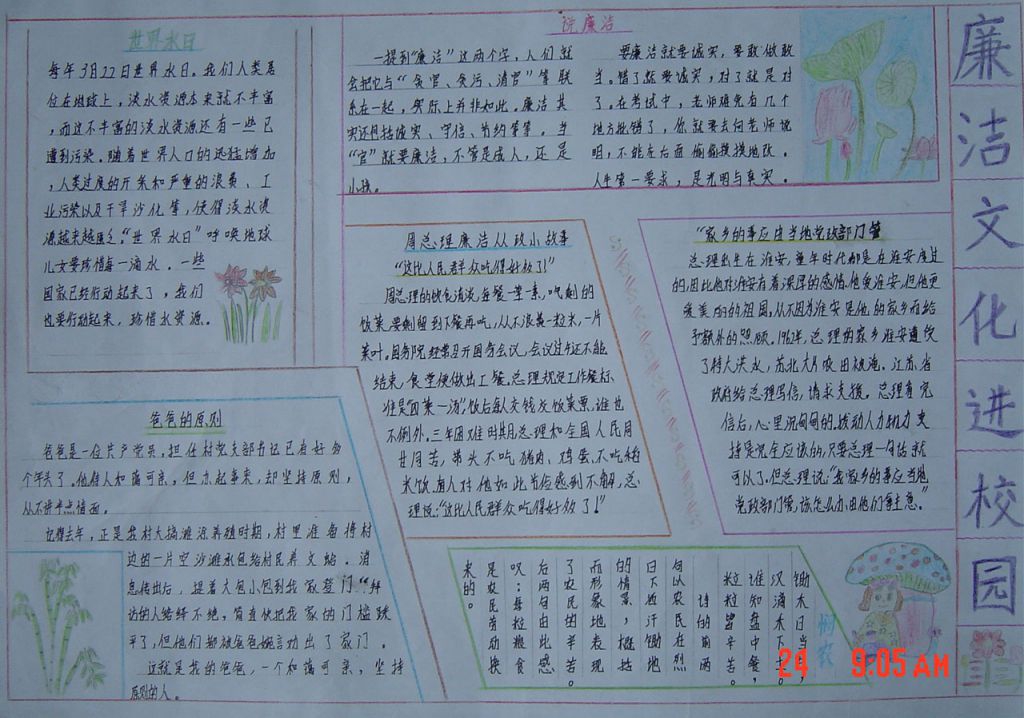 世界水日
每年3月22日世界水日。我们人类居
住在地球上，淡水资源本来就不丰富
，而这不丰富的淡水资源还有一些已
遭到污染。随着世界人口的迅猛增加
，人类过度的开采和严重的浪费、工
业污染以及干旱沙化等，使得淡水资
源越来越匮乏。“世界水日”呼唤地球
儿女要珍惜每一滴水。一些
国家已经行动起来了，我们
也要行动起来，珍惜水资源。
说廉洁
一提到“廉洁”这两个字，人们就
会把它与“贪官、贪污、清官”等联
系在一起，实际上并非如此。廉洁其
实还包括诚实、守信、节约等等。当
“官”就要廉洁，不管是成人，还是
小孩。
要廉洁就要诚实，要敢做敢
当。错了就要诚实，对了就是对
了。在考试中，老师难免有几个
地方批错了，你就要去向老师说
明，不能在后面偷偷摸摸地改。
人生第一要求，是光明与真实。
周总理廉洁从政小故事
“这比人民群众吃得好多了！”
周总理的饮食清淡，每餐一荤一素，吃剩的
饭菜，要剩留到下餐再吃，从不浪费一粒米，一片
菜叶。国务院经常召开国务会议，会议过午还不能
结束，食堂便做出工餐。总理规定工作餐标
准是“四菜一汤”，饭后每人交钱交饭菜票，谁也
不例外。三年困难时期，总理和全国人民同
甘同苦，带头不吃猪肉、鸡蛋、不吃稻
米饭，有人对他如此节俭感到不解，总
理说：“这比人民群众吃得好多了！”
“家乡的事应由当地党政部门管
总理出生在淮安，童年时代都是在淮安度过
的，因此他对淮安有着深厚的感情。他爱淮安，但他更
爱美丽的祖国，从不因为淮安是他的家乡而给
予额外的照顾。196年，总理的家乡淮安遭受
了特大洪水，苏北大片农田被淹。江苏省
政府给总理写信，请求支援。总理看完
信后，心里沉甸甸的。拨动人力物力支
持是完全应该的，只要总理一句话就
可以了。但总理说：“我家乡的事应当地
党政部门管，该怎么办由他们拿主意。”
爸爸的原则
爸爸是一位共产党员，担任村党支部书记已有好多
个年头了。他待人和蔼可亲，但办起事来，却坚持原则，
从不讲半点情面。
记得去年，正是我村大搞滩涂养殖时期，村里准备将村
边的一片空沙滩承包给村民养文蛤。消
息传出后，提着大包小包到我家登门“拜
访的人络绎不绝，简直快把我家的门槛踩
平了，但他们都被爸爸婉言劝出了家门。
这就是我的爸爸，一个和蔼可亲、坚持
原则的人。
悯农
锄禾日当午，
汗滴禾下土。
谁知盘中餐，
粒粒皆辛苦。
廉洁文化进校园
24 9:05 AM